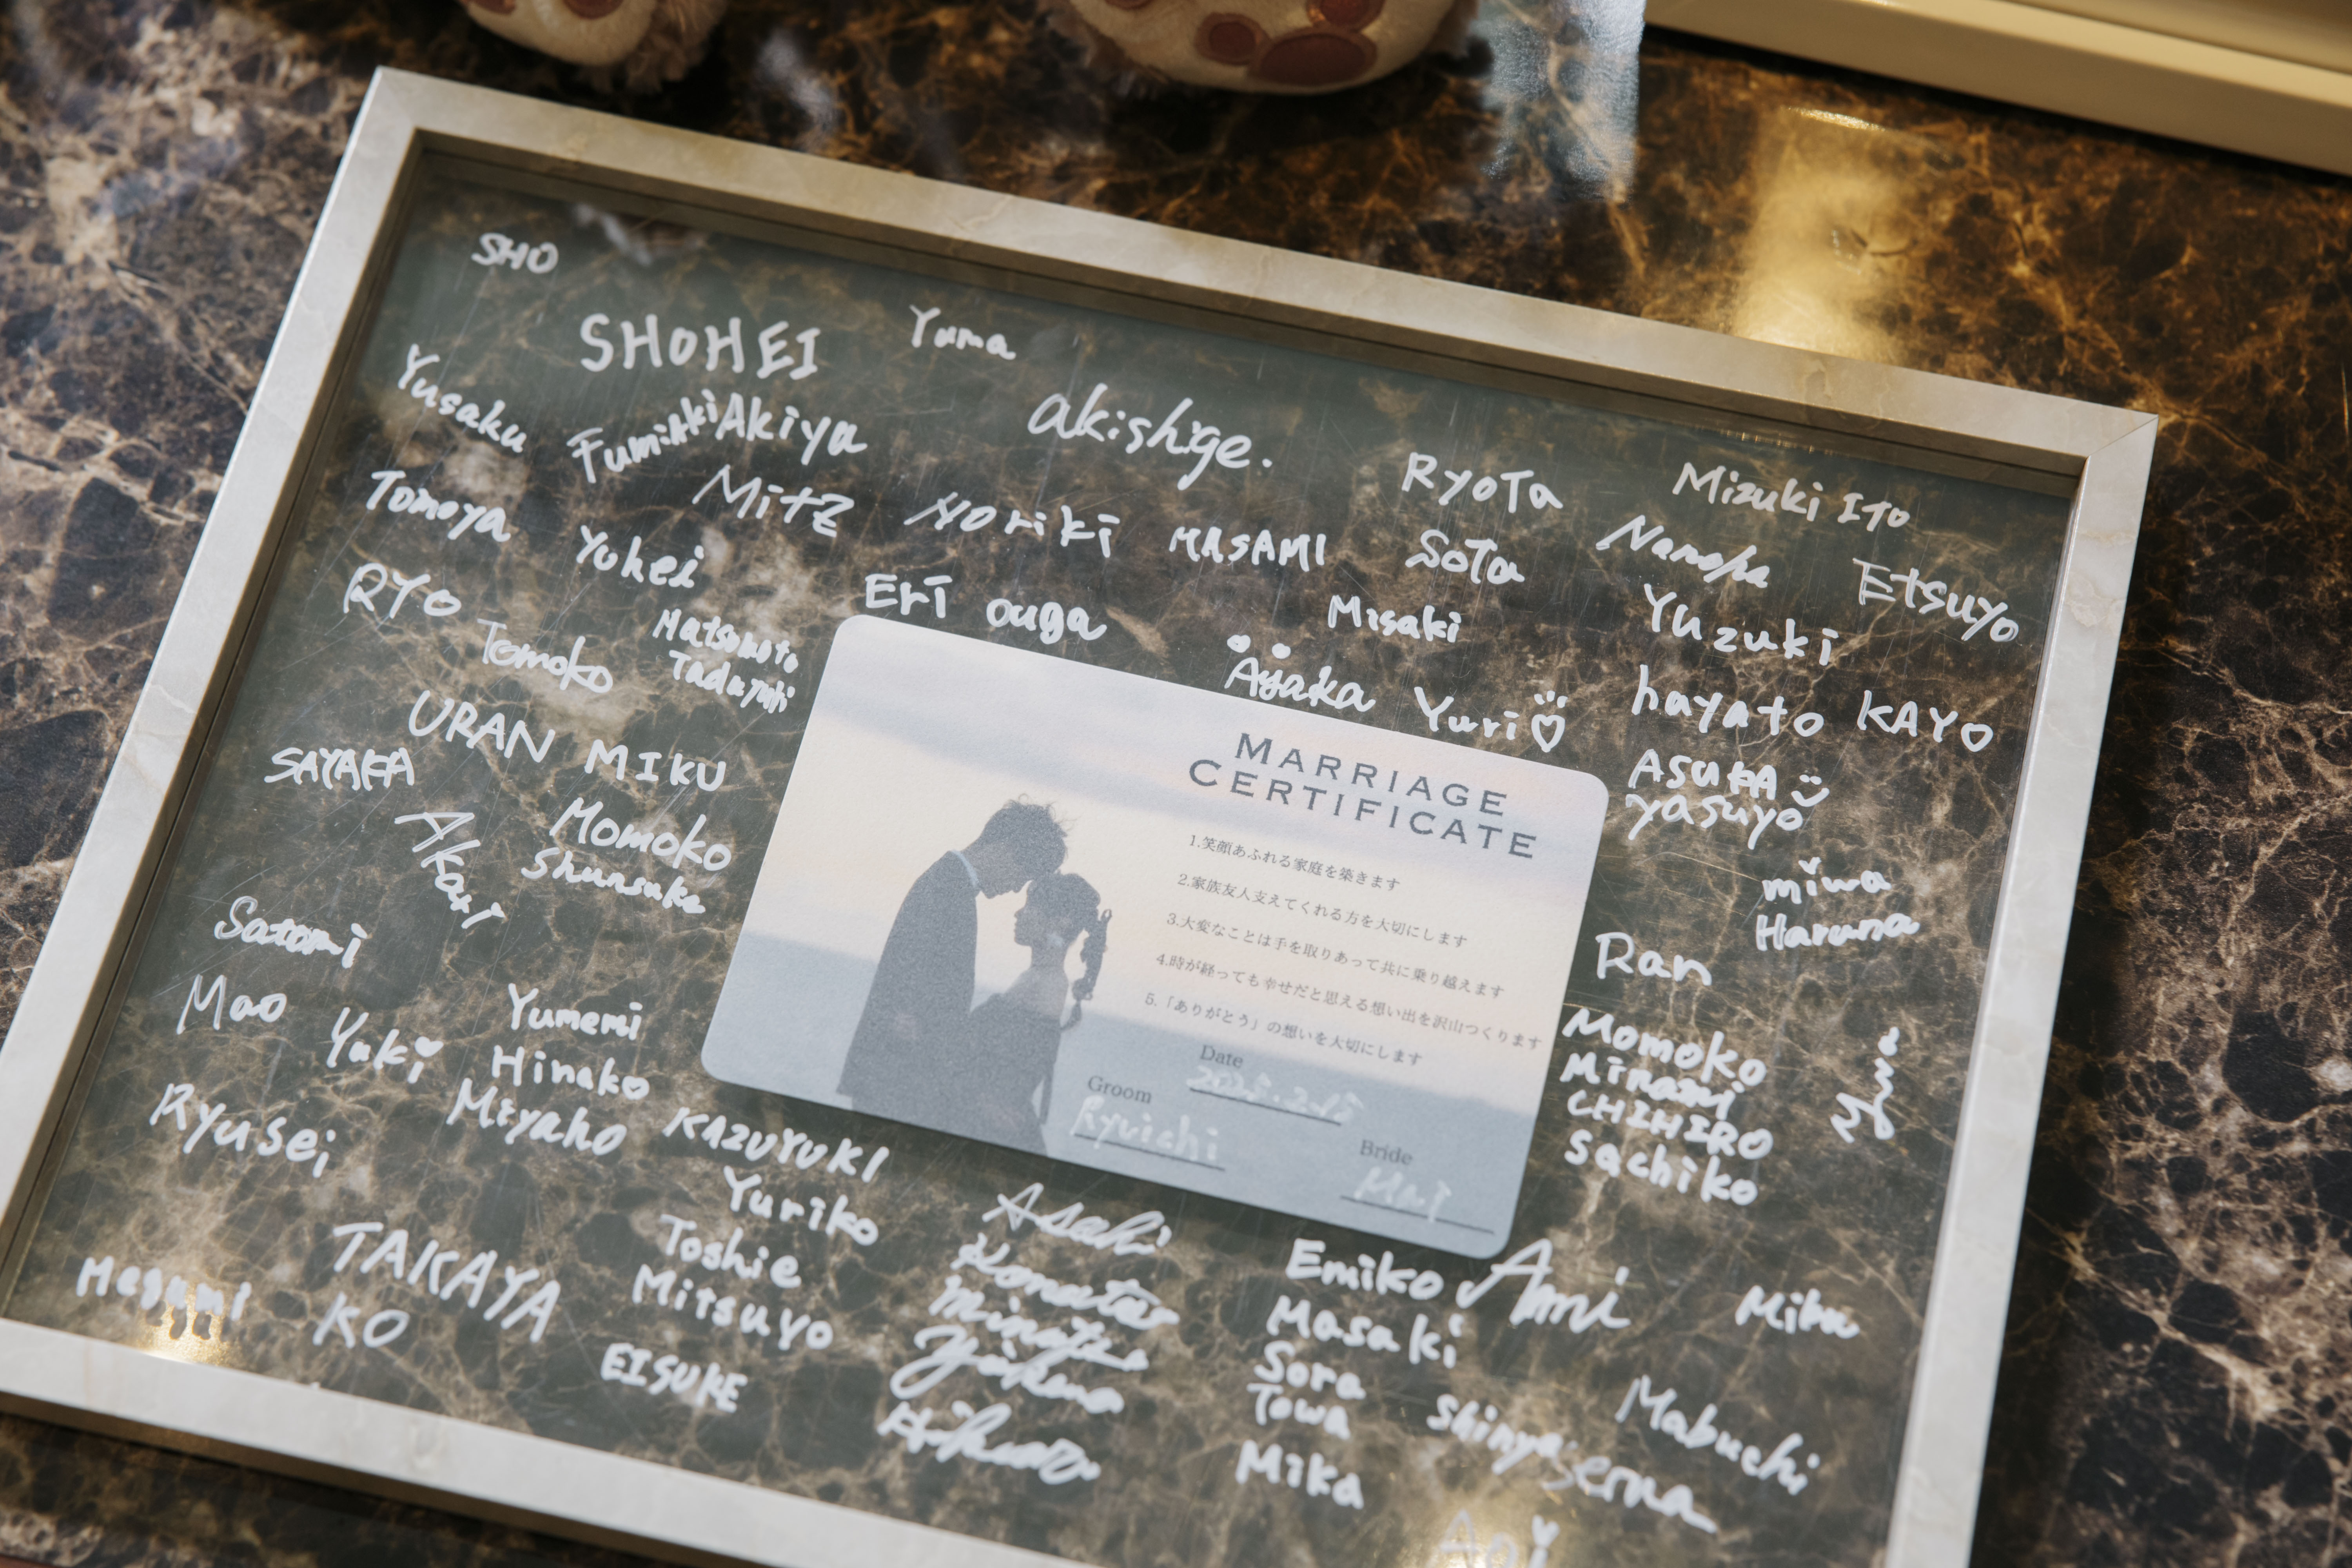 SHO
SHOHEI
Yuma
Yusaku
FumiAki
Akiya
akishige.
RyoTa
Mizuki ITO
Tomoya
MitZ
Noriki
MASAMI
SoTa
Etsuyo
Yuhei
RYo
Eri ouga
Misaki
Yuzuki
Tomoko
Matsumoto
Tadayuki
Ayaka
Yuri♡
hayato
KAYO
URAN
MIKU
SAYAKA
ASUKA
yasuyo
Akari
Momoko
Shunsuke
miwa
Haruna
Satomi
Ran
MARRIAGE
CERTIFICATE
1.笑顔あふれる家庭を築きます
2.家族友人支えてくれる方を大切にします
3.大変なことは手を取りあって共に乗り越えます
4.時が経っても幸せだと思える想い出を沢山つくります
5.「ありがとう」の想いを大切にします
Date
Groom
Ryuichi
Bride
Mai
Mao
Yuki
Yumemi
Hinako
Miyaho
Momoko
Minami
CHIHIRO
Sachiko
Ryusei
KAZUYUKI
Yuriko
Toshie
Mitsuyo
Asahi
Emiko
Masaki
Sora
Towa
Mika
Ami
Megumi
TAKAYA
KO
EISUKE
Shinya
Mabuchi
Aoi